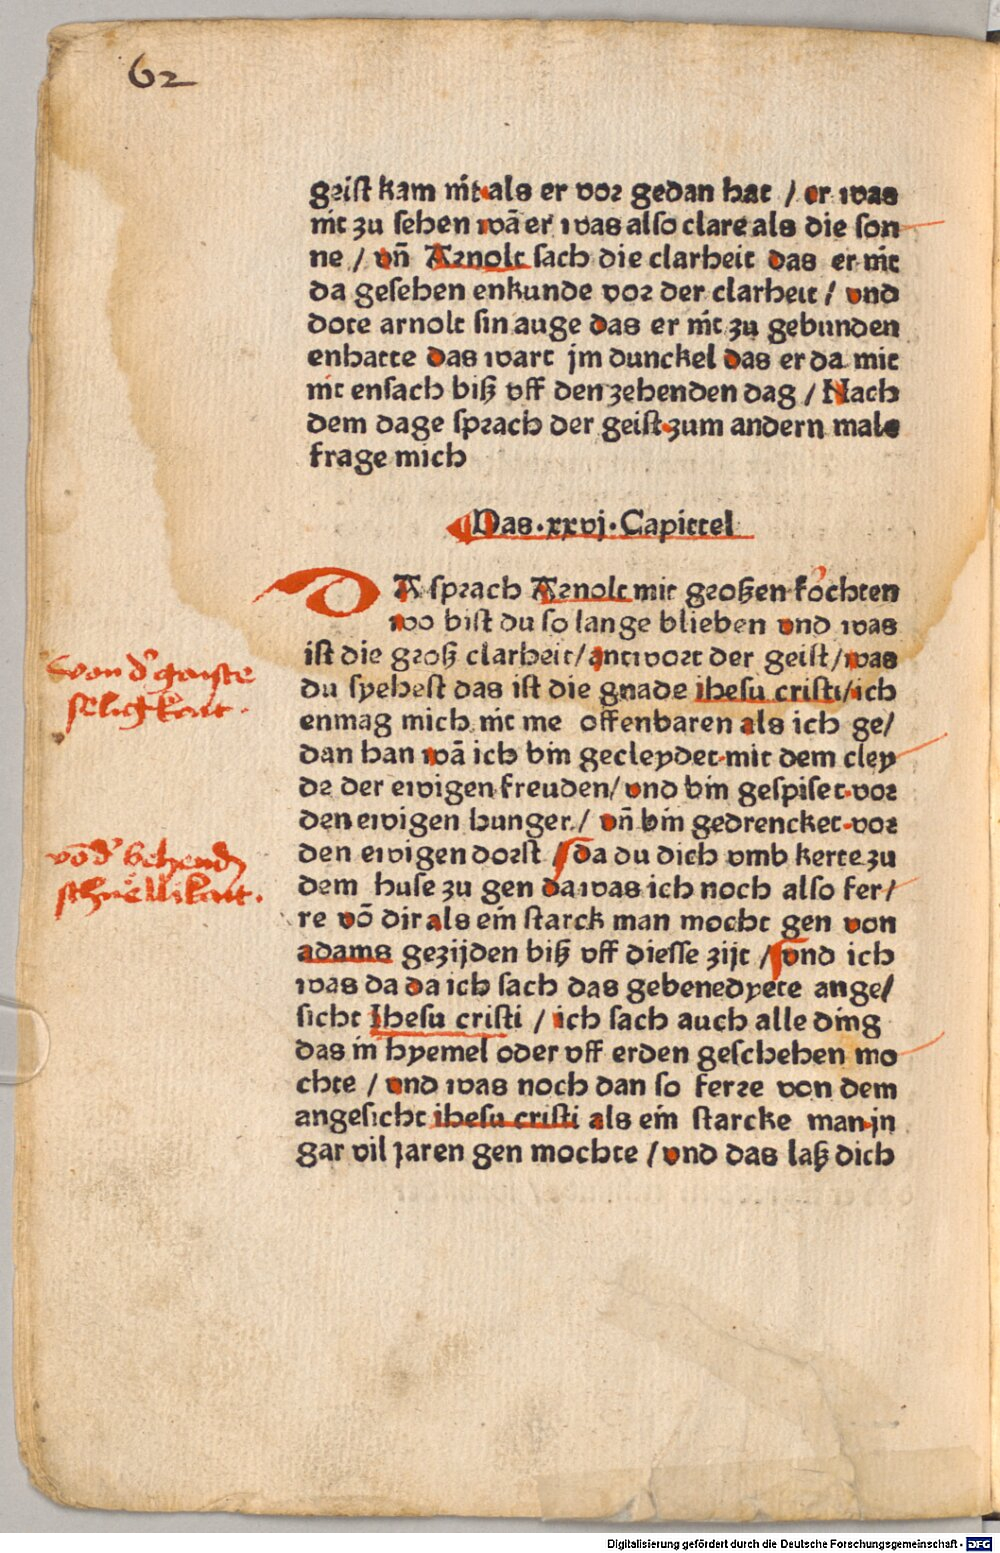 62
geist kam nit als er vor gedan hat / er was
nit zu sehen wā er was also clare als die son
ne / vñ Arnolt sach die clarheit das er nit
da gesehen enkunde vor der clarheit / vnd
dote arnolt sin auge das er nit zu gebunden
enhatte das wart jm dunckel das er da mit
nit ensach biß vff den zehenden dag / Nach
dem dage sprach der geist zum andern male
frage mich
Das .xxvj. Capittel
DA sprach Arnolt mit großen fochten
wo bist du so lange blieben vnd was
ist die groß clarheit / antwort der geist / was
du syehest das ist die gnade ihesu cristi / ich
enmag mich nit me offenbaren als ich ge/
dan han wā ich bin gecleydet mit dem cley
de der ewigen freuden / vnd bin gespiset vor
den ewigen hunger / vñ bin gedrencket vor
den ewigen dorst / da du dich vmb kerte zu
dem huse zu gen da was ich noch also fer/
re vō dir als ein starck man mocht gen von
adams gezijden biß vff diesse zijt / vnd ich
was da da ich sach das gebenedyete ange/
sicht Ihesu cristi / ich sach auch alle ding
das in hyemel oder vff erden geschehen mo
chte / vnd was noch dan so ferre von dem
angesicht ihesu cristi als ein starcke man jn
gar vil jaren gen mochte / vnd das laß dich
von d' gayste
seligkait .
vō d' behend
schnellikait .
Digitalisierung gefördert durch die Deutsche Forschungsgemeinschaft - DFG